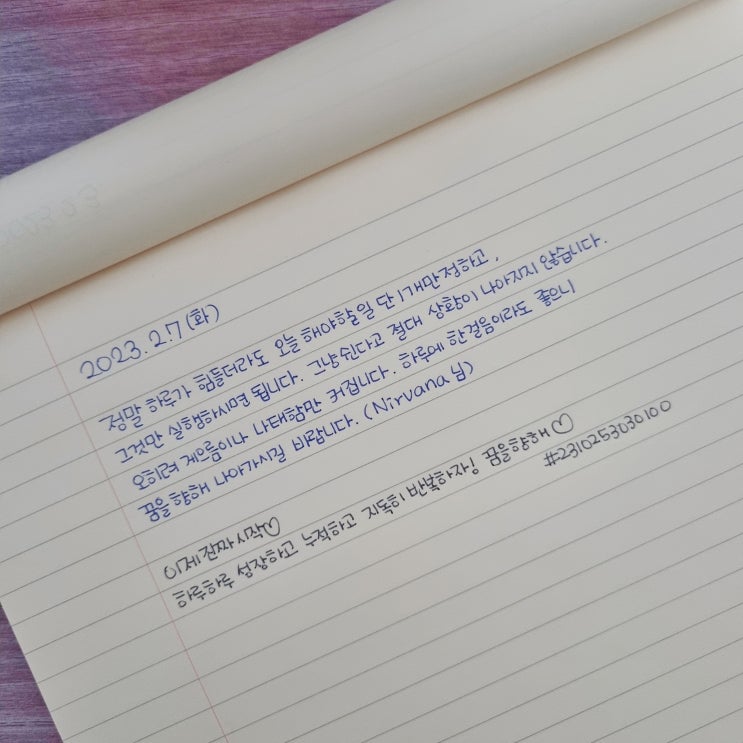 2023.2.7(화)
정말 하루가 힘들더라도 오늘 해야할일 단 1개만 정하고,
그것만 실행하시면 됩니다. 그냥 쉰다고 절대 상황이 나아지지 않습니다.
오히려 게으름이나 나태함만 커집니다. 하루에 한걸음이라도 좋으니
꿈을 향해 나아가시길 바랍니다. (Nirvana 님)
이제 진짜 시작♡
하루하루 성장하고 누적하고 지독히 반복하자! 꿈을향해♡
#2310253030100